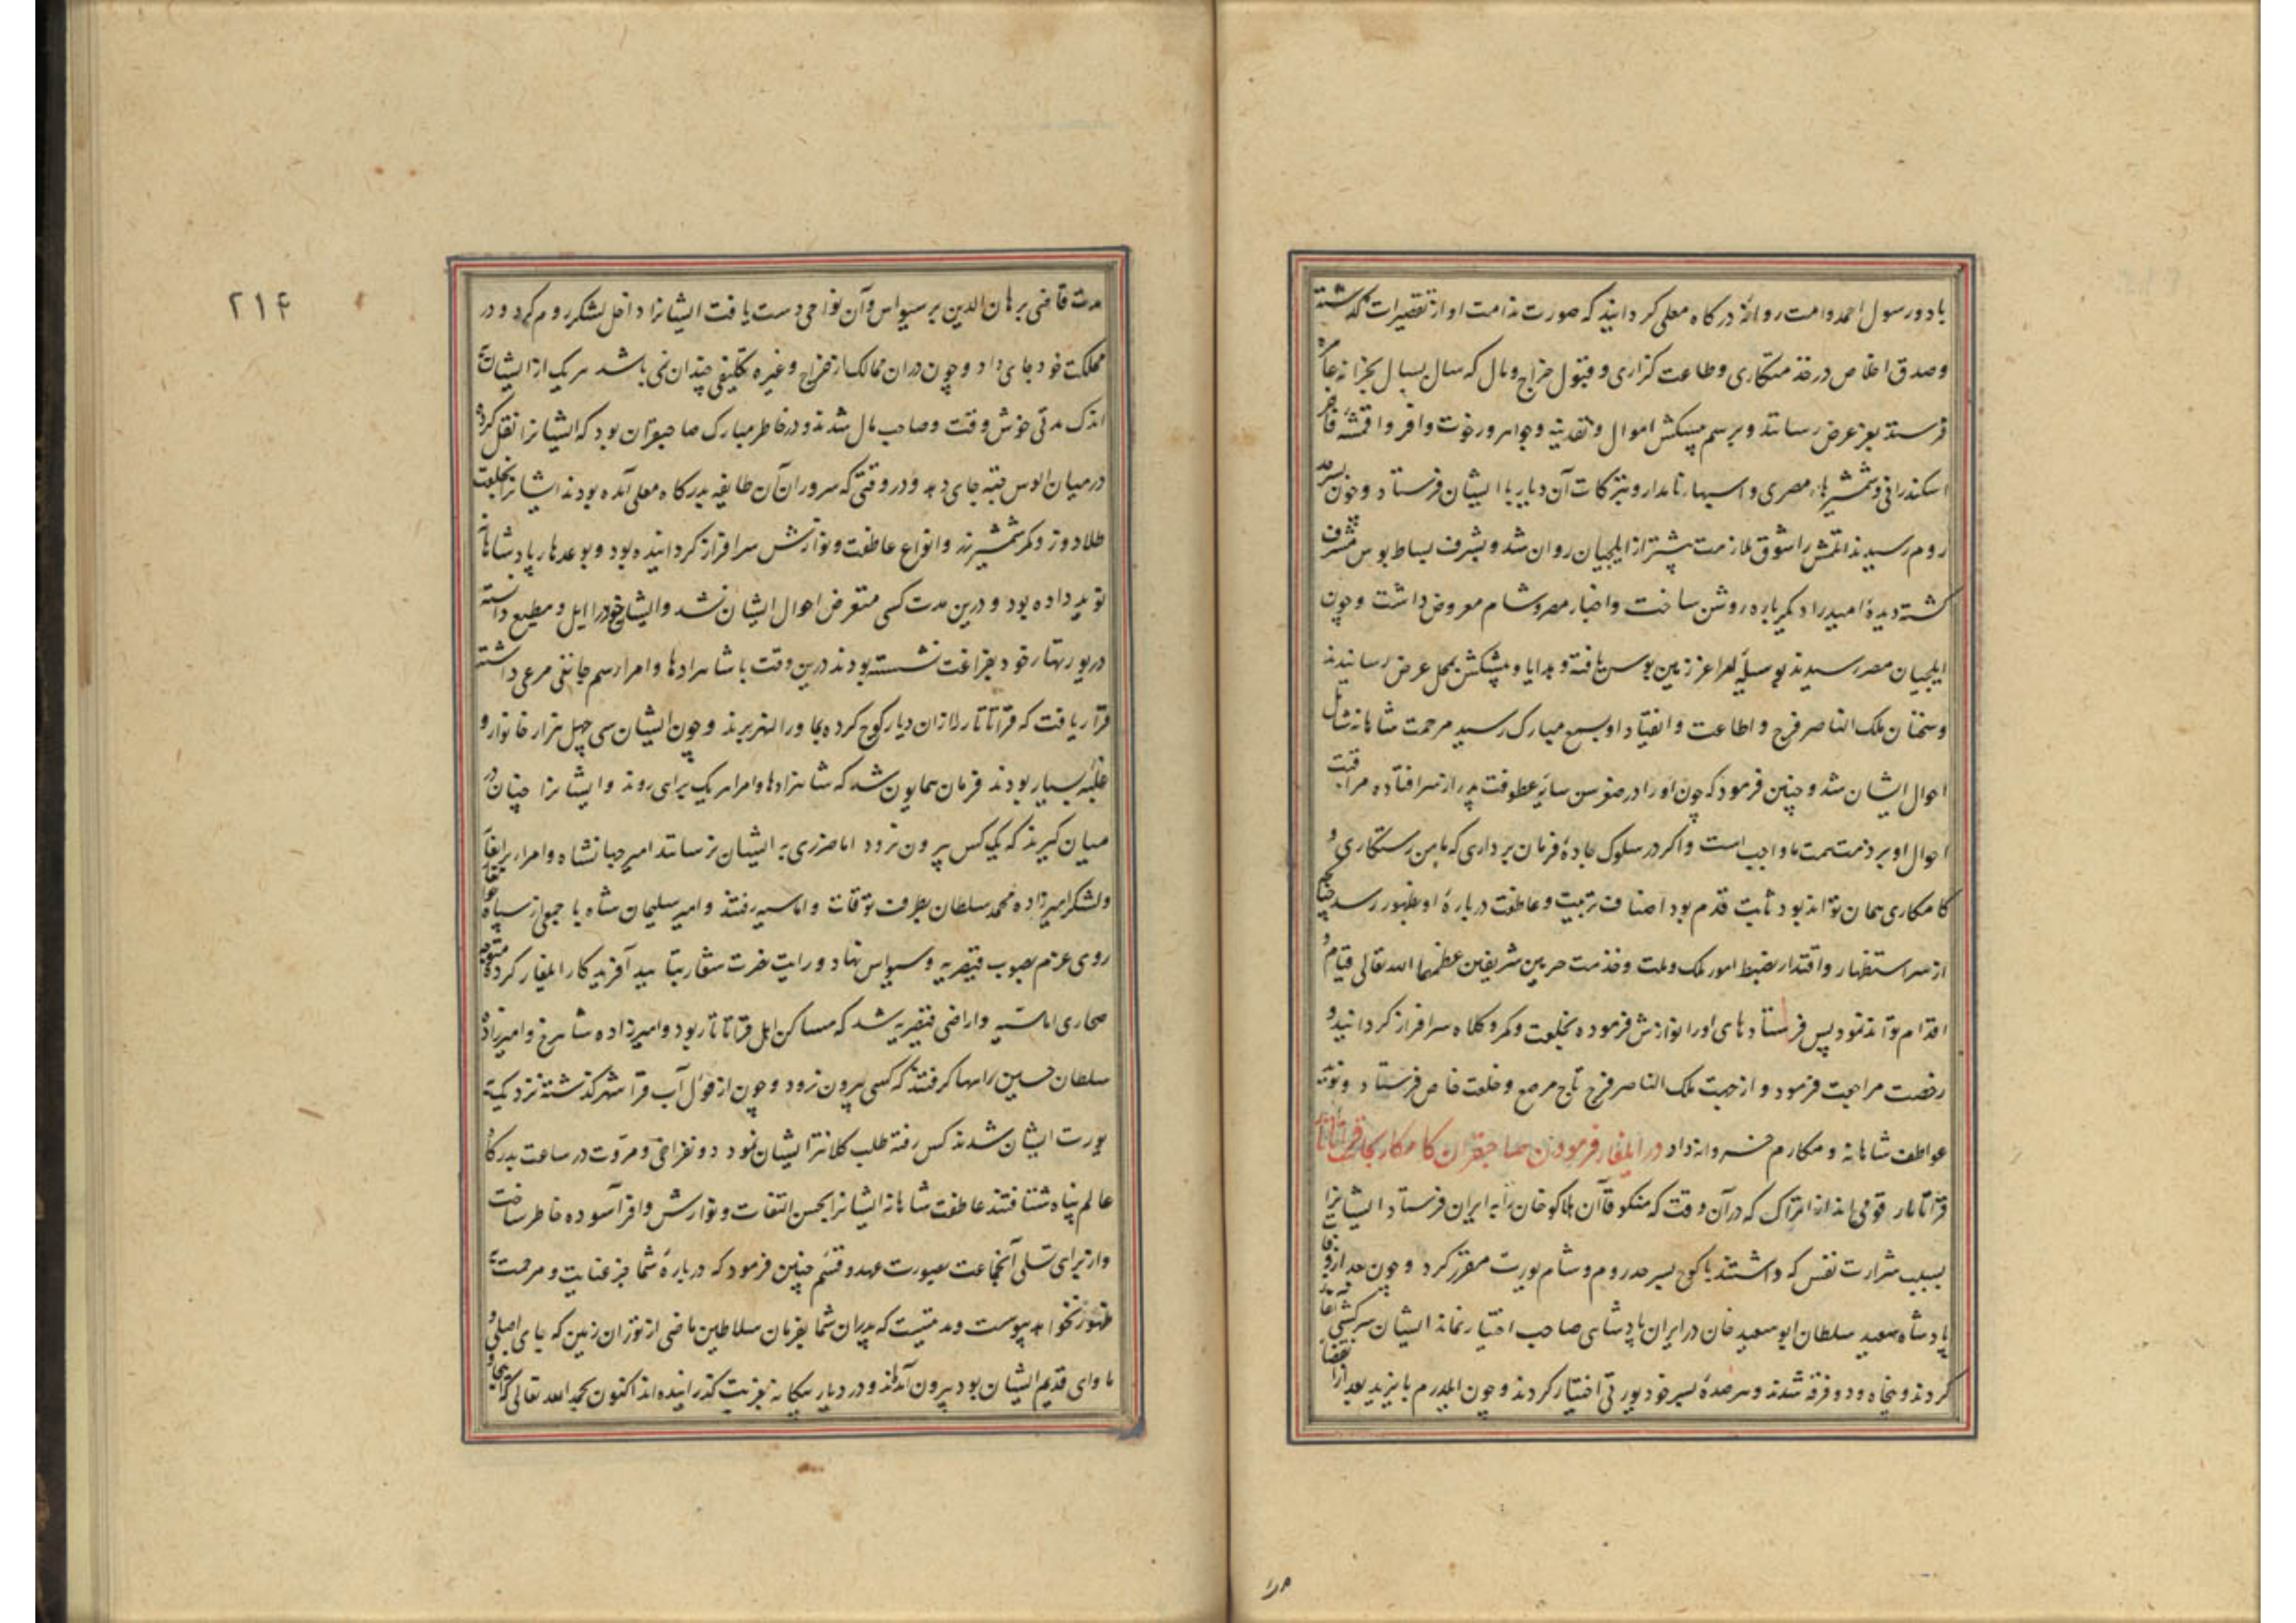 با دو رسول احمد وامت روانهٔ درکاه معلی کردانید که صورت ندامت او از تقصیرات کذشته
وصدق اخلاص در خدمتکاری وطاعت کزاری و قبول خراج ومال که سال بسال بخزانه عامره
فرستد بعز عرض رسانند و برسم پیشکش اموال ونقدینه وجواهر ورخوت وافر واقمشهٔ فاخر
اسکندرانی وشمشیرهاء مصری واسبهاء نامدار وتبرکات آن دیار با ایشان فرستاد وچون بسرحد
روم رسیدند اتلمش را شوق ملازمت پیشتر از ایلچیان روان شد و بشرف بساط بوس مشرف
کشته دیدهٔ امید را دکرباره روشن ساخت واخبار مصر وشام معروض داشت وچون
ایلچیان مصر رسیدند بوسیلهٔ امرا عز زمین بوس یافته وهدایا و پیشکش بمحل عرض رسانیدند
وسخنان ملک الناصر فرج و اطاعت و انقیاد او بسمع مبارک رسید مرحمت شاهانه شامل
احوال ایشان شد وچنین فرمود که چون او را در صغر سن سایهٔ عطوفت پدر از سر افتاده مراقبت
احوال او بر ذمت همت ما واجب است واکر در سلوک جادهٔ فرمان برداری که مابین رستکاری و
کامکاری همان تواند بود ثابت قدم بود اصناف تربیت وعاطفت دربارهٔ او بظهور رسد چنانچه
از سر استظهار واقتدار بضبط امور ملک وملت وخدمت حرمین شریفین عظمهما الله تعالی قیام و
اقدام تواند نمود پس فرستادهای او را نوازش فرموده بخلعت وکمر وکلاه سرافراز کردانید و
رخصت مراجعت فرمود و از جهت ملک الناصر فرج تاج مرصع وخلعت خاص فرستاد و
عواطف شاهانه و مکارم خسروانه داد در ایلغار فرمودن صاحبقران کامکار بجانب قراتاتار
قراتاتار قومی اند از اتراک که در آن وقت که منکو قاآن هلاکو خان را به ایران فرستاد ایشانرا
بسبب شرارت نفس که داشتند با کوچ بسرحد روم وشام یورت مقرر کرد وچون بعد از وفات
پادشاه سعید سلطان ابو سعید خان در ایران پادشاهی صاحب اختیار نماند ایشان سرکشی آغاز
کردند و پنجاه ودو فرقه شدند وهر صدهٔ بسر خود یورتی اختیار کردند وچون ایلدرم بایزید بعد از
مدت قاضی برهان الدین بر سیواس وآن نواحی دست یافت ایشانرا داخل لشکر روم کرد و در
مملکت خود جای داد وچون دران ممالک از خراج وغیره تکلیفی چندان نمی باشد هر یک از ایشان
اندک مدتی خوش وقت وصاحب مال شدند ودر خاطر مبارک صاحبقران بود که ایشانرا نقل کرده
در میان الوس جته جای دهد ودر وقتی که سروران آن طایفه بدرکاه معلی آمده بودند ایشانرا بخلعت
طلادوز وکمر شمشیر زر وانواع عاطفت ونوازش سرافراز کردانیده بود وبوعدهاء پادشاهانه
نوید داده بود و درین مدت کسی متعرض احوال ایشان نشد وایشان خود را ایل ومطیع دانسته
در یورتهاء خود بفراغت نشسته بودند درین وقت با شاهزادها وامرا رسم جانغی مرعی داشته
قرار یافت که قراتاتار را ازان دیار کوچ کرده بماوراالنهر برند وچون ایشان سی چهل هزار خانوار و
غلبهٔ بسیار بودند فرمان همایون شد که شاهزادها وامرا هر یک براهی روند وایشانرا چنان در
میان کیرند که یک کس بیرون نرود اما ضرری به ایشان نرسانند امیر جهانشاه وامراء برانغار
ولشکر امیرزاده محمد سلطان بطرف توقات واماسیه رفتند وامیر سلیمان شاه با جمعی از سپاه
روی عزم بصوب قیصریه وسیواس نهاد ورایت نصرت شعار بتایید آفریدکار ایلغار کرده متوجه
صحاری اماسیه واراضی قیصریه شد که مساکن اهل قراتاتار بود وامیرزاده شاهرخ وامیرزاده
سلطان حسین راهها کرفتند که کسی بیرون نرود وچون از قوال آب قراشهر کذشته نزدیک به
یورت ایشان شدند کس رفته طلب کلانتران ایشان نمود دو نفر اخی ومروت در ساعت بدرکاه
عالم پناه شتافتند عاطفت شاهانه ایشانرا بحسن التفات ونوازش وافر آسوده خاطر ساخت
واز برای تسلی آنجماعت بصورت عهد وقسم چنین فرمود که دربارهٔ شما جز عنایت ومرحمت
ظهور نخواهد پیوست ومدتیست که پدران شما بفرمان سلاطین ماضی از توران زمین که جای اصلی و
ماوای قدیم ایشان بود بیرون آمده اند ودر دیار بیکانه بغربت کذرانیده اند اکنون بحمد الله تعالی که
۲۱۴